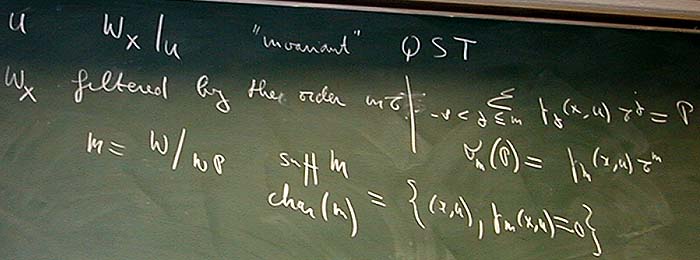 u W_X|_u "invariant" QST
W_X filtered by the order in τ: Σ_{-∞<j≤m} p_j(x,u) τ^j = P
m = W/WP σ_m(P) = p_m(x,u) τ^m
supp m
char(m) = {(x,u), p_m(x,u)=0}